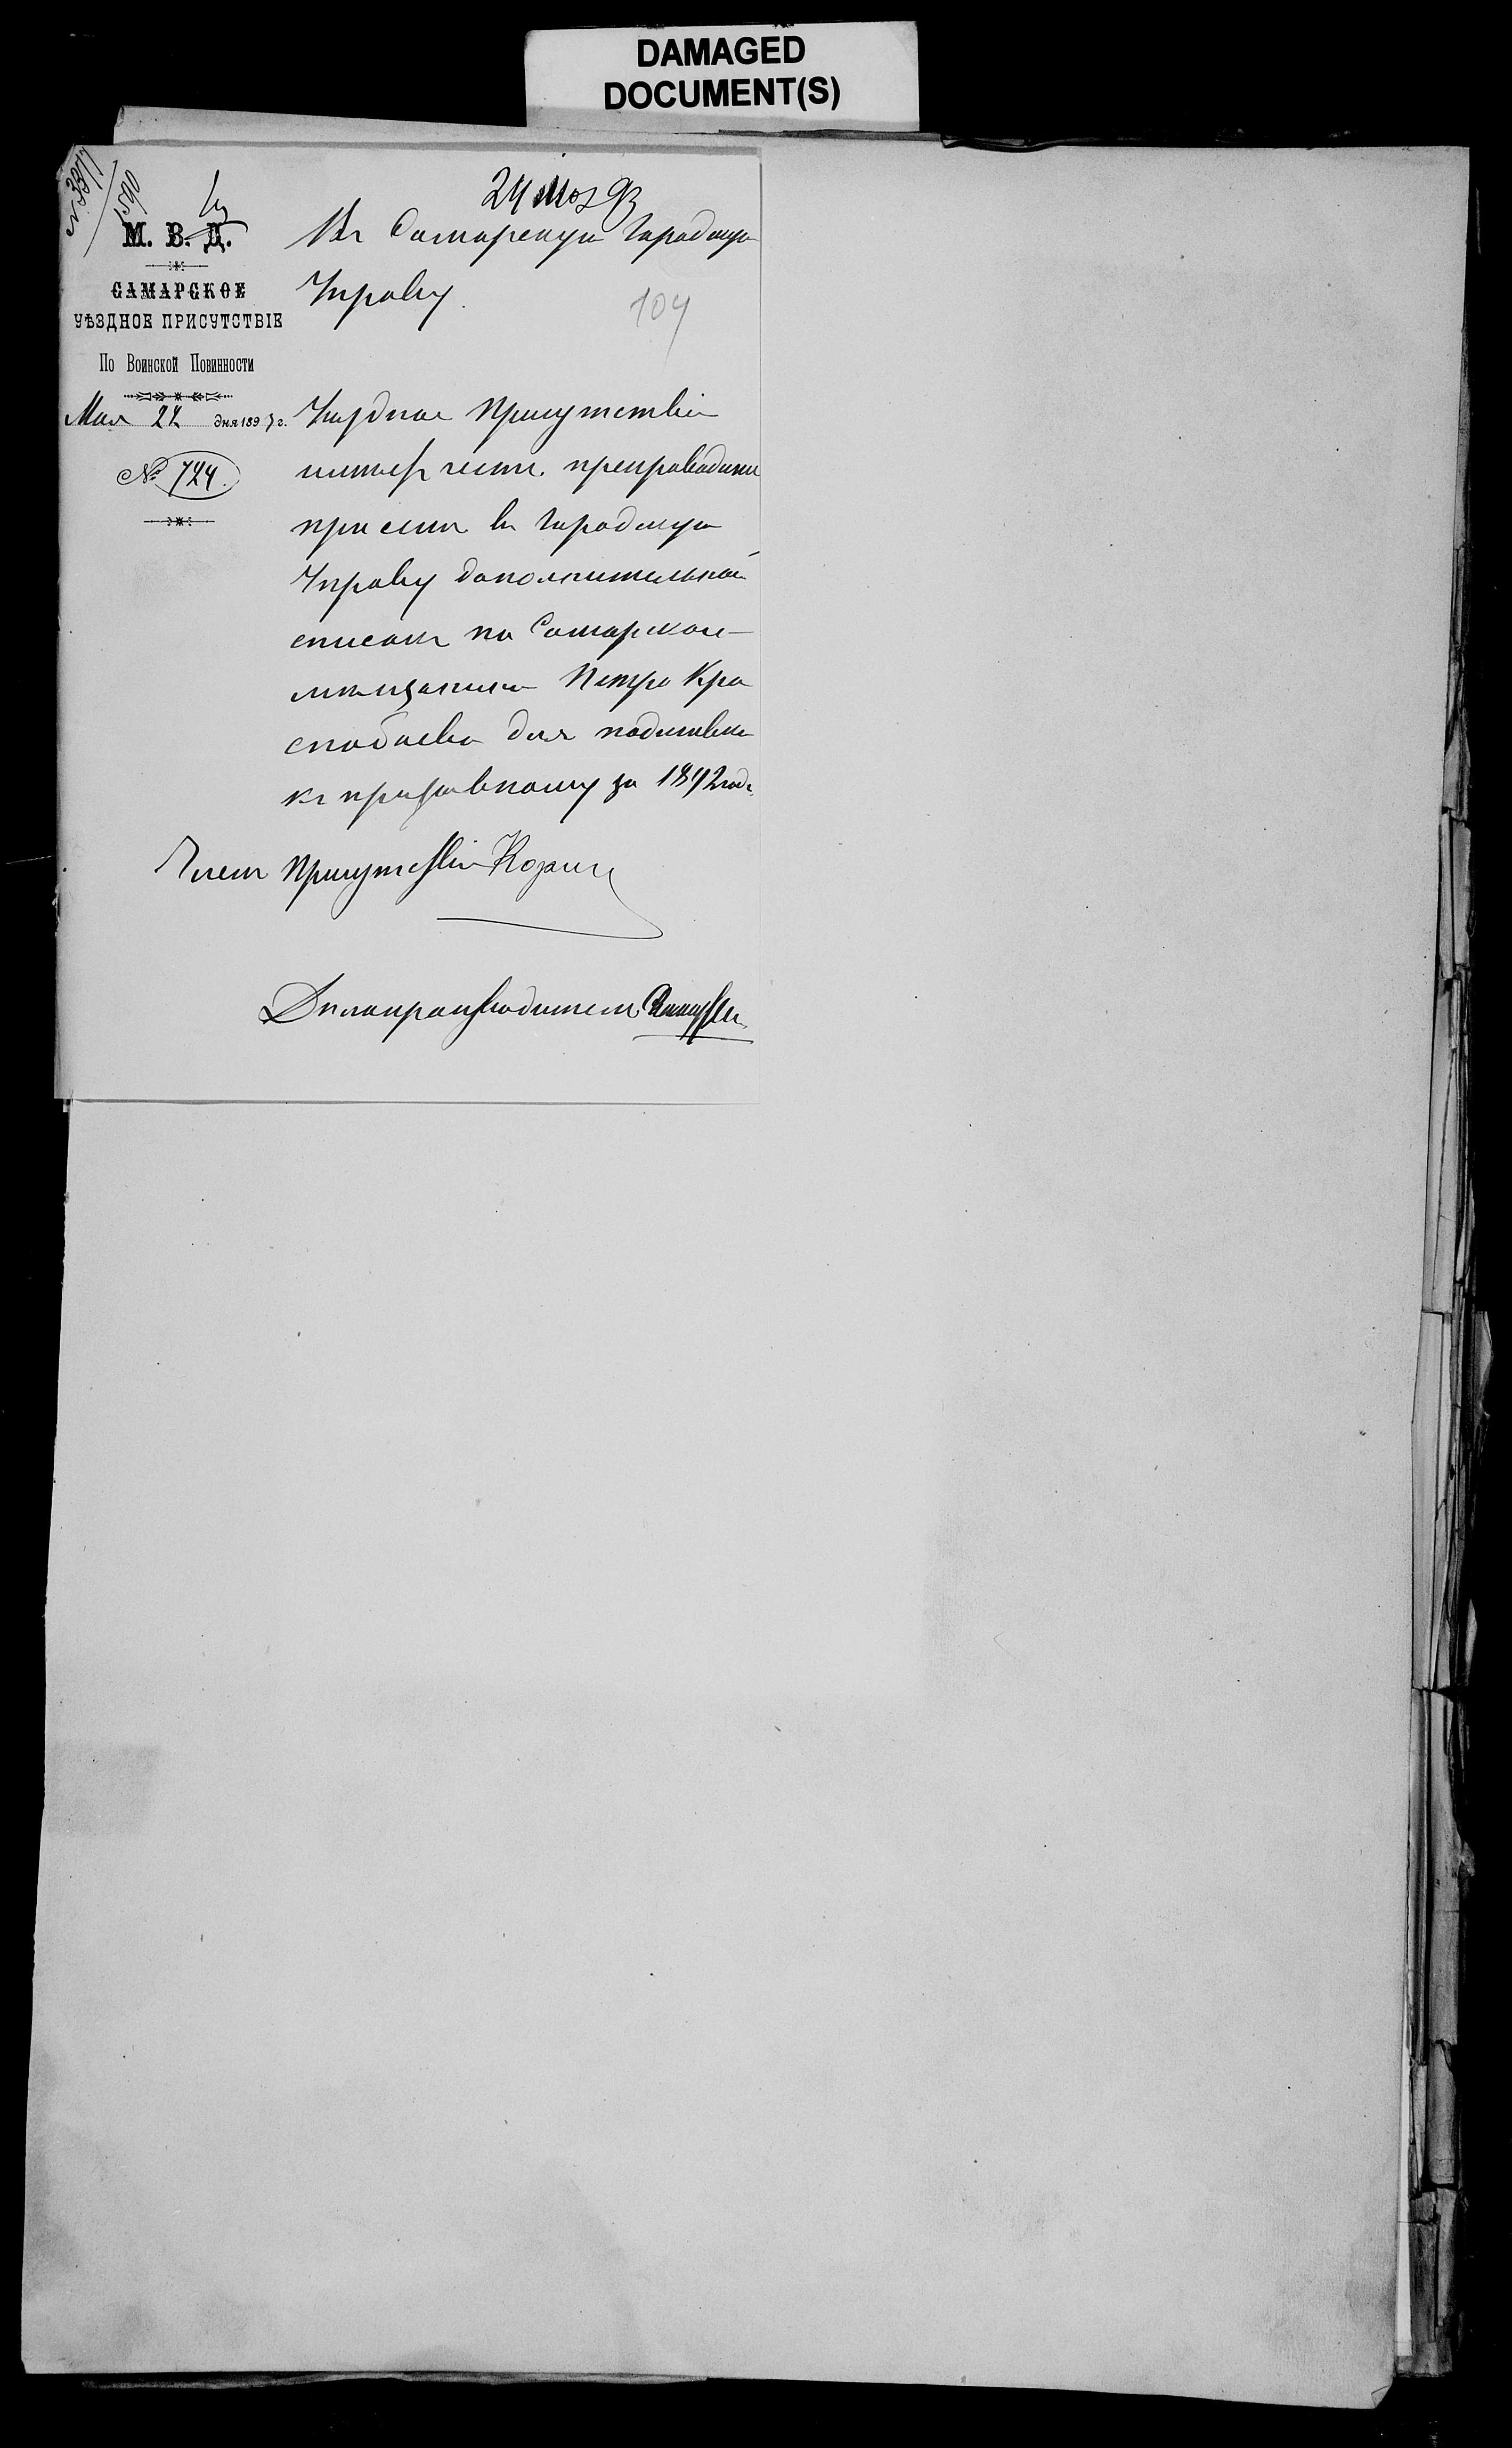 DAMAGED
DOCUMENT(S)
24 мая 93
М. В. Д.
САМАРСКОЕ
УѢЗДНОЕ ПРИСУТСТВІЕ
По Воинской Повинности
Мая 24 дня 1893 г.
№ 724.
Въ Самарскую Городскую
Управу.
104
Уѣздное Присутствіе
имѣетъ честь препроводить
при семъ въ Городскую
Управу дополнительной
списокъ на Самарскаго
мѣщанина Петра Кра
снобаева для
къ призывному за 1892 годъ
Членъ Присутствія
Дѣлопроизводитель